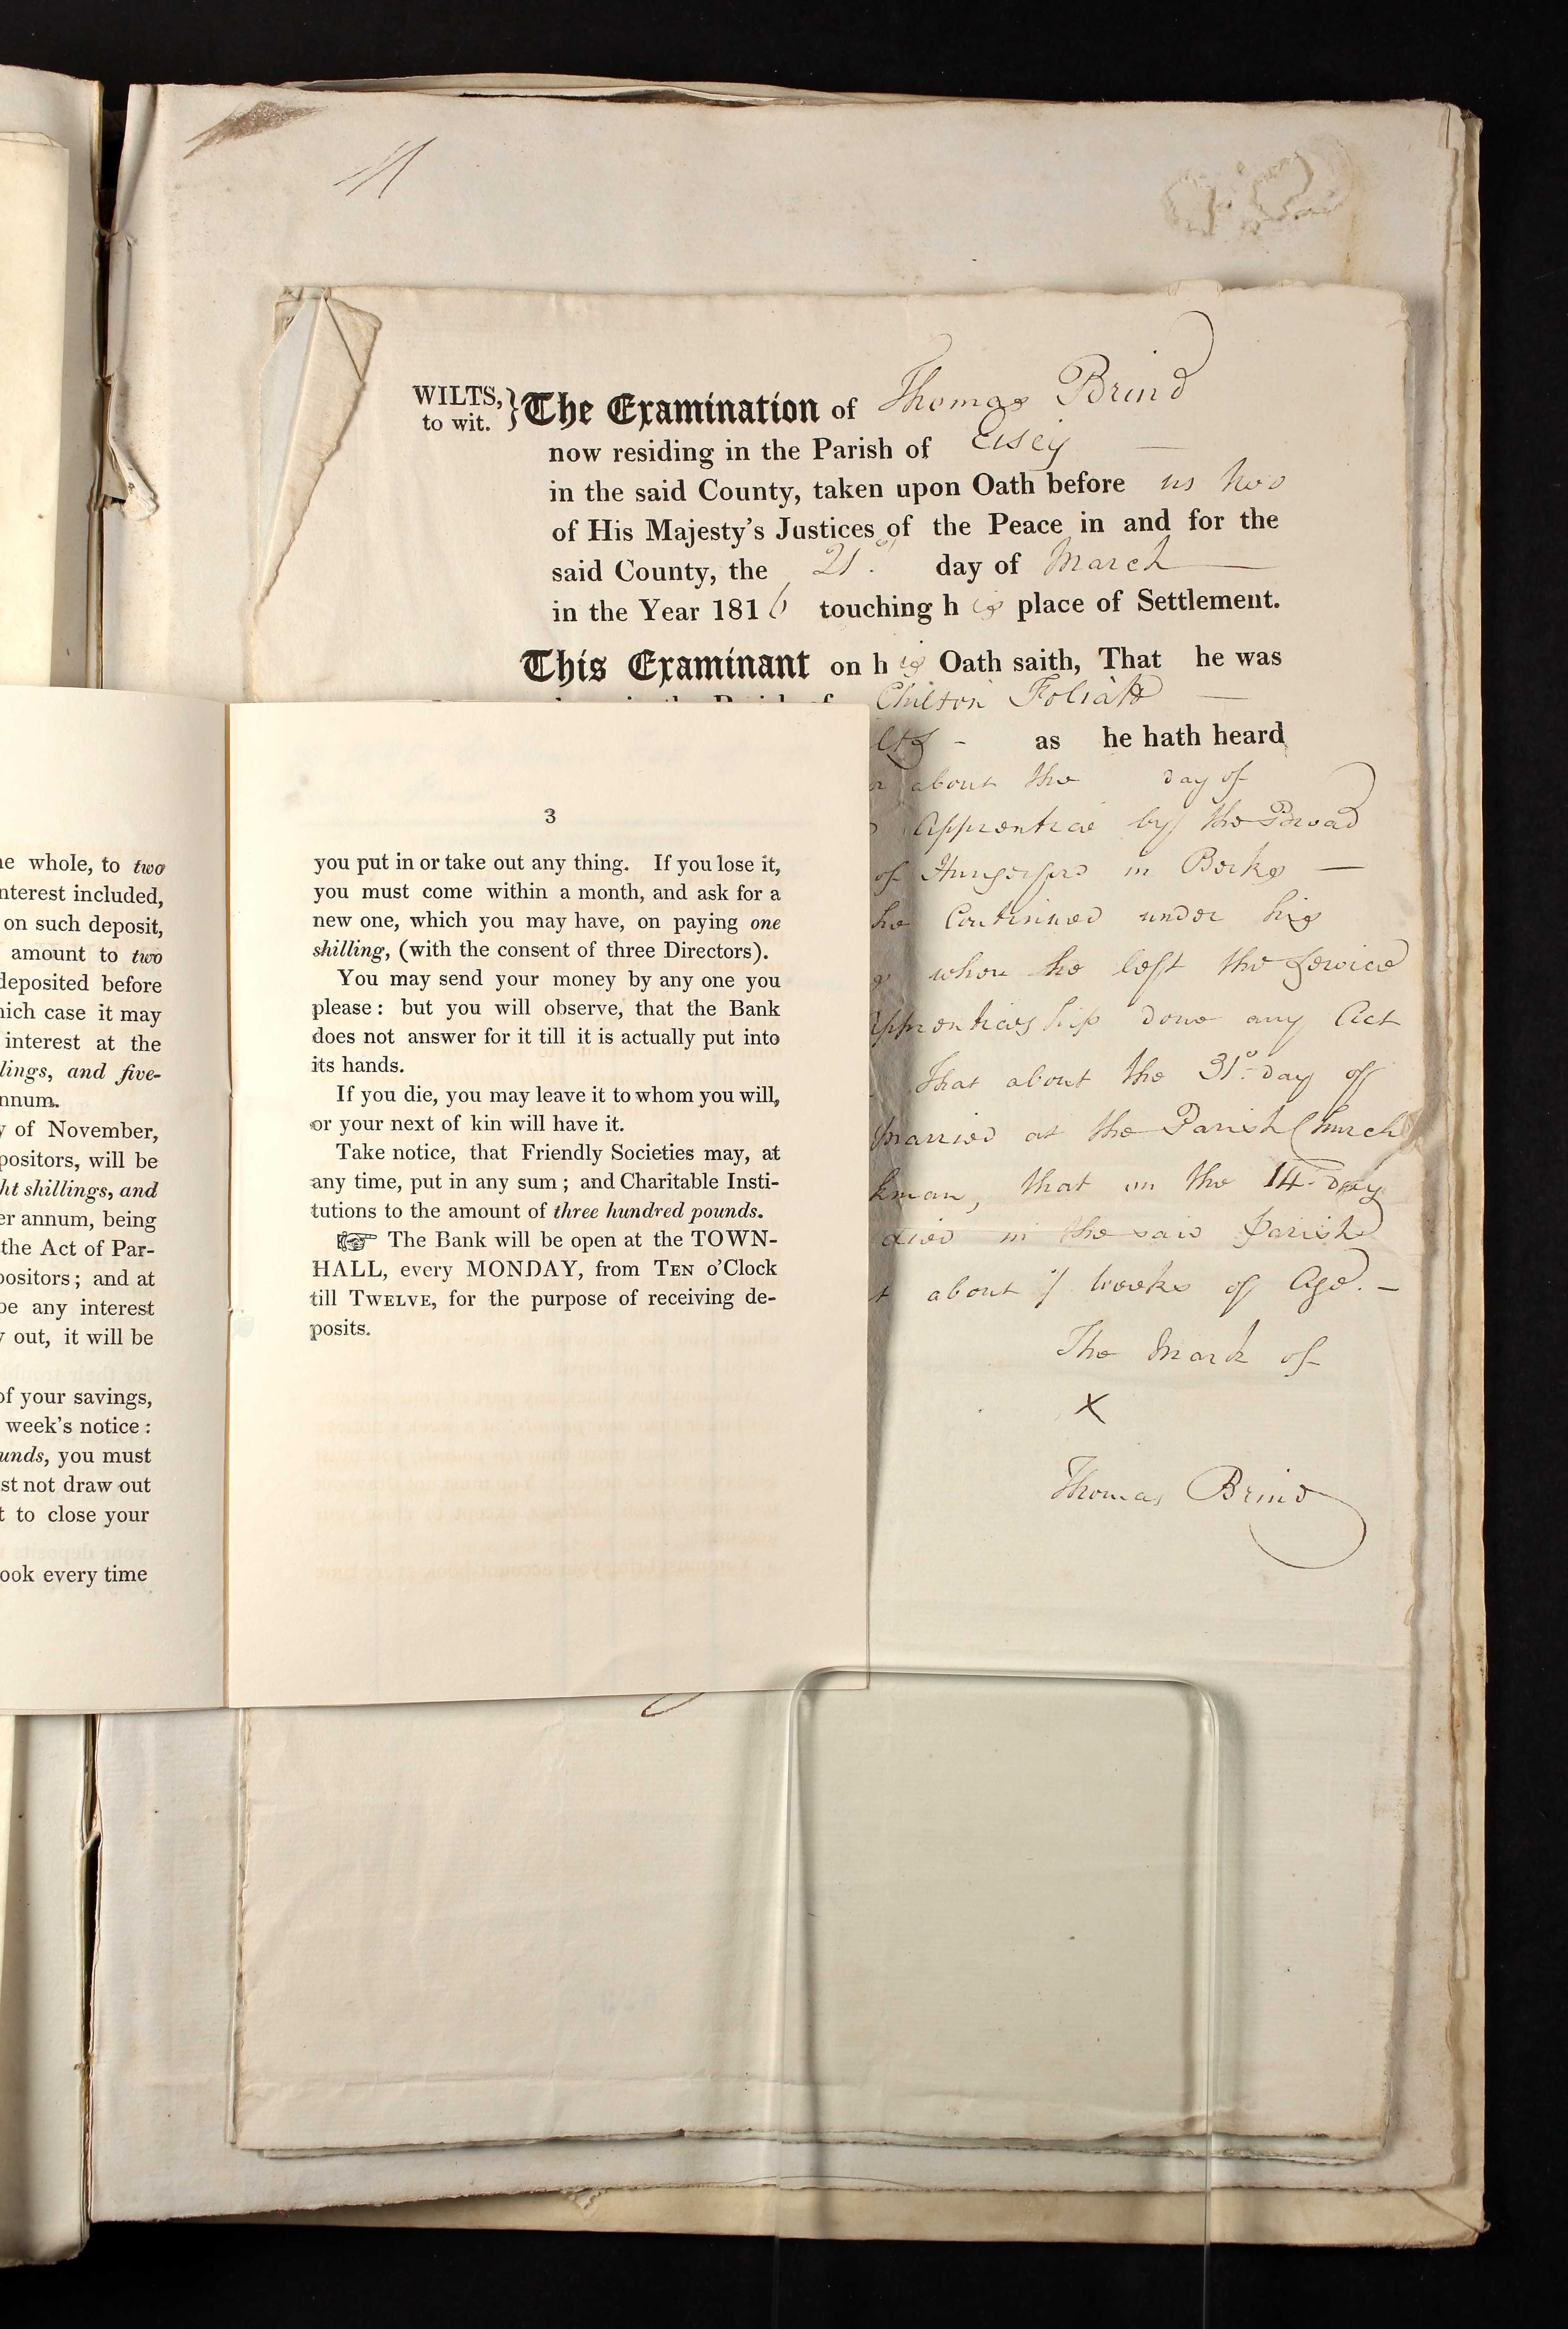 WILTS,
to wit.
} The Examination of Thomas Brind
now residing in the Parish of Eisey
in the said County, taken upon Oath before us two
of His Majesty's Justices of the Peace in and for the
said County, the 21st day of March
in the Year 1816 touching his place of Settlement.
This Examinant on his Oath saith, That he was
Chilton Foliatt
as he hath heard
about the day of
Apprentice by the
of Hungerford in Berks
he Continued under his
when he left the Service
pprenticeship done any Act
That about the 31st day of
married at the Parish Church
kman, that on the 14 day
died in the said Parish
about 7 weeks of Age. -
The Mark of
X
Thomas Brind
e whole, to two
nterest included,
on such deposit,
amount to two
deposited before
ich case it may
interest at the
lings, and five-
nnum.
of November,
positors, will be
ht shillings, and
er annum, being
the Act of Par-
ositors; and at
be any interest
out, it will be
of your savings,
week's notice:
unds, you must
st not draw out
t to close your
ook every time
3
you put in or take out any thing. If you lose it,
you must come within a month, and ask for a
new one, which you may have, on paying one
shilling, (with the consent of three Directors).
You may send your money by any one you
please: but you will observe, that the Bank
does not answer for it till it is actually put into
its hands.
If you die, you may leave it to whom you will,
or your next of kin will have it.
Take notice, that Friendly Societies may, at
any time, put in any sum; and Charitable Insti-
tutions to the amount of three hundred pounds.
☞ The Bank will be open at the TOWN-
HALL, every MONDAY, from TEN o'Clock
till TWELVE, for the purpose of receiving de-
posits.